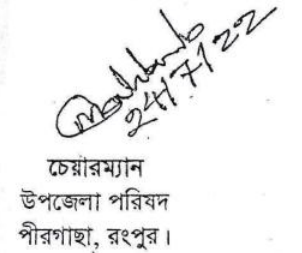 24/7/22
চেয়ারম্যান
উপজেলা পরিষদ
পীরগাছা, রংপুর।